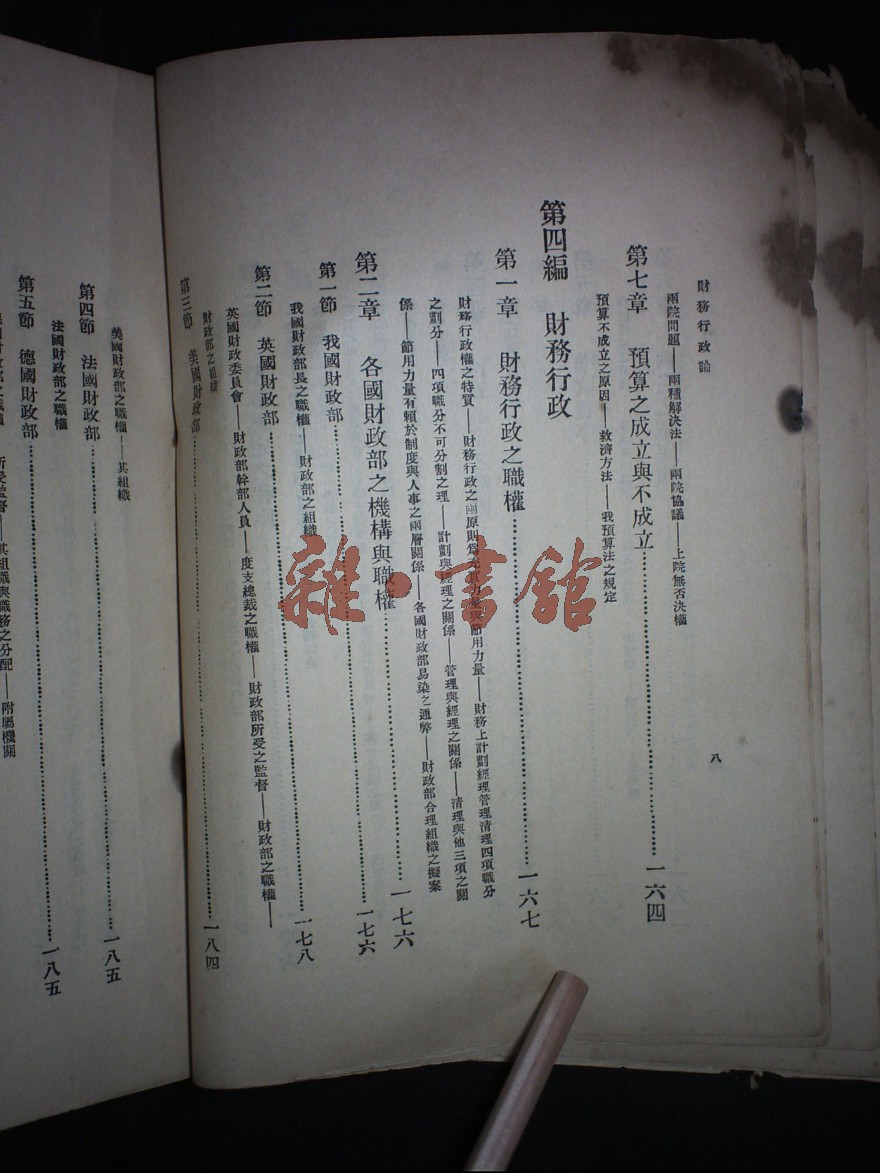 財務行政論
八
兩院問題——兩種解決法——兩院協議——上院無否決權
第七章 預算之成立與不成立……一六四
預算不成立之原因——救濟方法——我預算法之規定
第四編 財務行政
第一章 財務行政之職權……一六七
財務行政權之特質——財務行政之兩原則為充實力量與節用力量——財務上計劃經理管理清理四項職分
之劃分——四項職分不可分割之理——計劃與經理之關係——管理與經理之關係——清理與他三項之關
係——節用力量有賴於制度與人事之兩層關係——各國財政部易染之通弊——財政部合理組織之擬案
第二章 各國財政部之機構與職權……一七六
第一節 我國財政部……一七六
我國財政部長之職權——財政部之組織
第二節 英國財政部……一七八
英國財政委員會——財政部幹部人員——度支總裁之職權——財政部所受之監督——財政部之職權——
財政部之組織
第三節 美國財政部……一八四
美國財政部之職權——其組織
第四節 法國財政部……一八五
法國財政部之職權
第五節 德國財政部……一八五
財政部之職權 所受監督——其組織與職務之分配——附屬機關
雜·書館